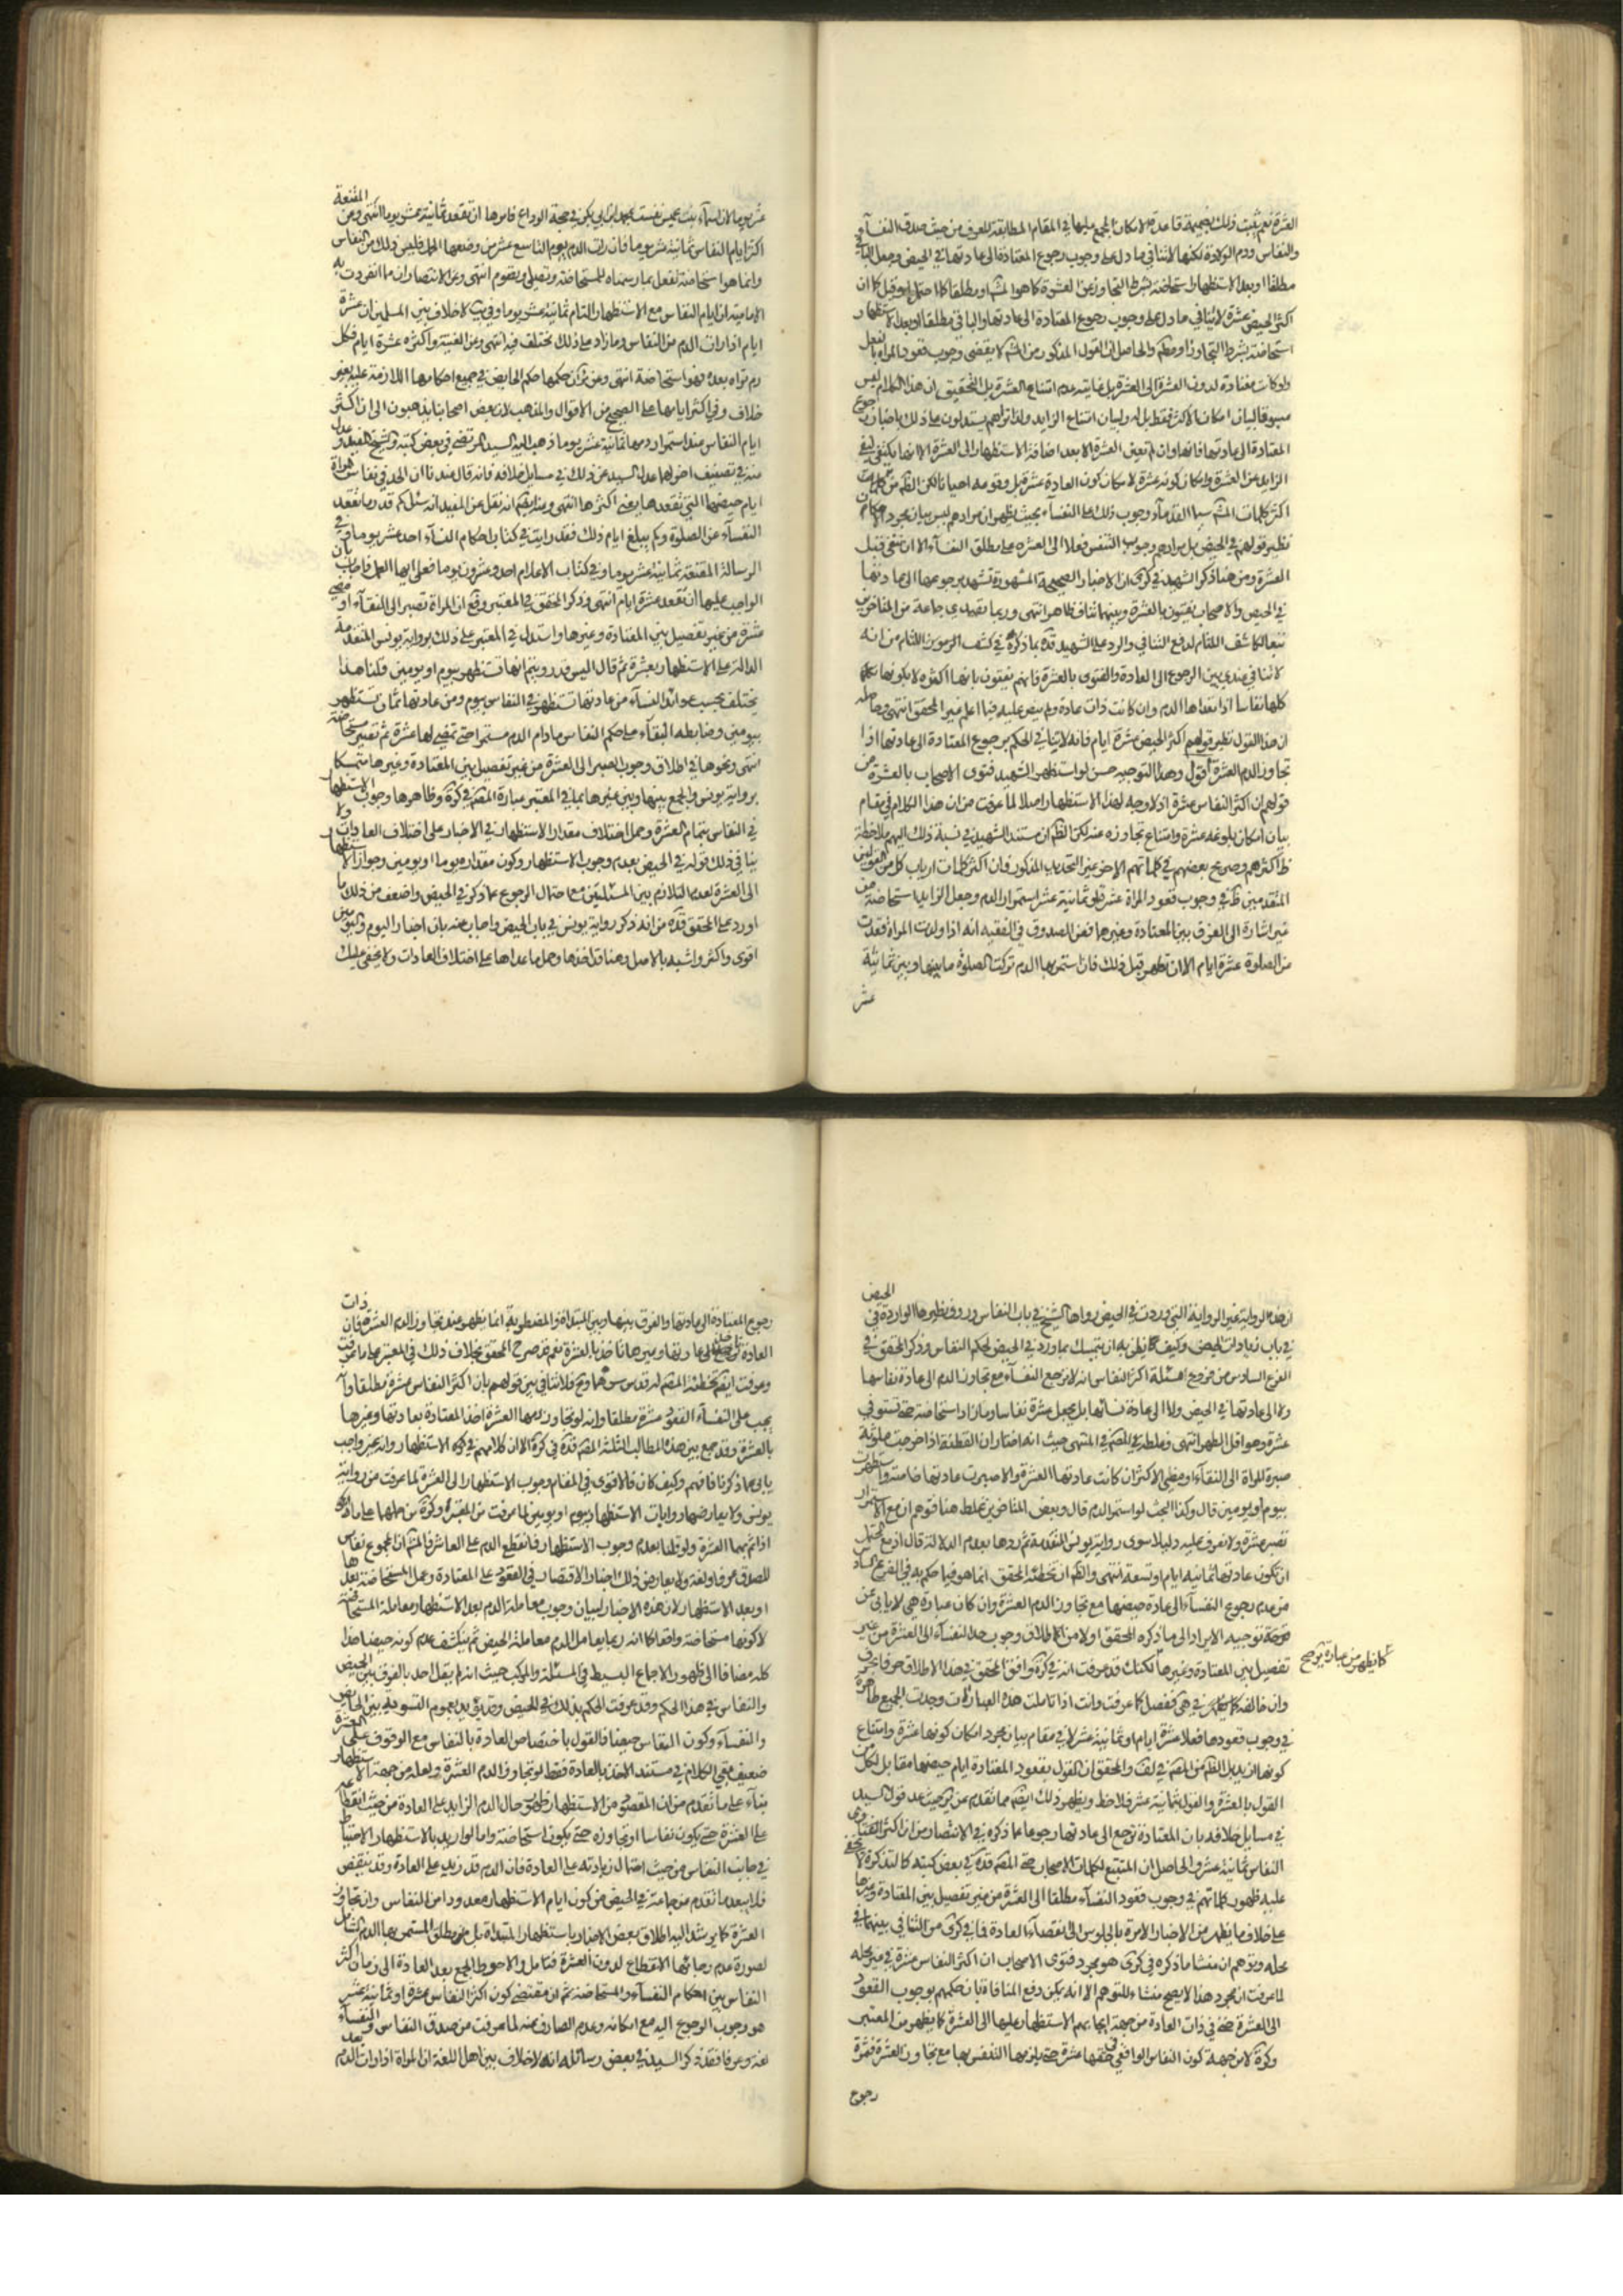 العشرة نعم يثبت ذلك بضميمة قاعدة الامكان المجمع عليها في المقام المطابقة للعرف من حيث صدق النفسآء
والنفاس ودم الولادة لكنها لا تنافي ما دل على وجوب رجوع المعتادة الى عادتها في الحيض وجعل الباقي
مطلقا او بعد الاستظهار استحاضة بشرط التجاوز عن العشرة كما هو المش او مطلقا كما احتمل او قيل كما ان
اكثر الحيض عشرة لا ينافي ما دل على وجوب رجوع المعتادة الى عادتها والباقي مطلقا او بعد الاستظهار
استحاضة بشرط التجاوز او مطلقا والحاصل ان القول المذكور من المش لا يقضي وجوب قعود المراة بالفعل
ولو كانت معتادة لدون العشرة الى العشرة بل غايته عدم امتناع العشرة بل التحقيق ان هذا الكلام ليس
مسوقا لبيان امكان الاكثر فقط بل له ولبيان امتناع الزايد ولذا تراهم يستدلون على ذلك باخبار رجوع
المعتادة الى عادتها فانها وان لم تعين العشرة الا بعد اضافة الاستظهار الى العشرة الا انها يكتفي لنفي
الزايد عن العشرة وامكان كونه عشرة لامكان كون العادة عشرة قبل وقوعه احيانا لكن الظم من كلمات
اكثر كلمات المش سيما القدمآء وجوب ذلك على النفسآء بحيث يظهر ان مرادهم ليس بيان مجرد الامكان
نظير قولهم في الحيض بل مرادهم وجوب التنفس فعلا الى العشرة على مطلق النفسآء الا ان تنقى قبل
العشرة ومن هنا ذكر الشهيد في كرى ان الاخبار الصحيحة المشهورة تشهد برجوعها الى عادتها
في الحيض والاصحاب يفتون بالعشرة وبينهما تناف ظاهر انتهى وربما تصدى جماعة من المتاخرين
تبعا لكاشف اللثام لدفع التنافي والرد على الشهيد قده بما ذكره في كشف الرموز اللثام من انه
لا تنافي عندي بين الرجوع الى العادة والفتوى بالعشرة فانهم يفتون بانها اكثره لا بكونها كلها
كلها نفاسا اذا تعداها الدم وان كانت ذات عادة ولم ينص عليه فيما اعلم غير المحقق انتهى وحاصله
ان هذا القول نظير قولهم اكثر الحيض عشرة ايام فانه لا ينافي الحكم برجوع المعتادة الى عادتها اذا
تجاوز الدم العشرة اقول وهذا التوجيه حسن لو استظهر الشهيد فتوى الاصحاب بالعشرة من
قولهم ان اكثر النفاس عشرة اذ لا وجه لهذا الاستظهار اصلا لما عرفت من ان هذا الكلام في مقام
بيان امكان بلوغه عشرة وامتناع تجاوزه عنه لكن الظم ان مستند الشهيد في نسبة ذلك اليهم ملاحظة
ظ اكثرهم وصريح بعضهم في كلماتهم الاخر غير التحديد المذكور فان اكثر كلمات ارباب كل من القولين
المتقدمين ظ في وجوب قعود المراة عشرة او ثمانية عشر لو استمر الدم وجعل الزايد استحاضة من
غير اشارة الى الفرق بين المعتادة وغيرها فعن الصدوق في الفقيه انه اذا ولدت المراة قعدت
من الصلوة عشرة ايام الا ان تطهر قبل ذلك فان استمر بها الدم تركت الصلوة ما بينها وبين ثمانية
عشر
المقنعة
عشر يوما لان اسمآء بنت عميس نفست بمحمد بن ابي بكر في حجة الوداع فامرها ان تقعد ثمانية عشر يوما انتهى وعن
اكثر ايام النفاس ثمانية عشر يوما فان رات الدم يوم التاسع عشر من وضعها الحمل فليس ذلك من النفاس
وانما هو استحاضة تفعل بما رسمناه للمستحاضة وتصلي وتصوم انتهى وعن الانتصار ان مما انفردت به
الامامية ان ايام النفاس مع الاستظهار التام ثمانية عشر يوما وفي لا خلاف بين المسلمين ان عشرة
ايام اذا رات الدم من النفاس وما زاد على ذلك مختلف فيه انتهى وعن الغنية واكثره عشرة ايام فكل
دم تراه بعده فهو استحاضة انتهى وعن ئر ان حكمها حكم الحايض في جميع احكامها اللازمة عليه بغير
خلاف وفي اكثر ايامها على الصحيح من الاقوال والمذهب لان بعض اصحابنا يذهبون الى ان اكثر
ايام النفاس عند استمرار دمها ثمانية عشر يوما ذهب اليه السيد المرتضى في بعض كتبه والشيخ المفيد وعدل
عنه في تصنيف اخر لهما عدل السيد عن ذلك في مسايل خلافه فانه قال عندنا ان الحد في نفاس المراة
ايام حيضها التي تقعدها يعني اكثرها انتهى وعن ايضا انه نقل عن المفيد انه سئل كم قدر ما تقعد
النفسآء عن الصلوة وكم يبلغ ايام ذلك فقد رايت في كتاب احكام النسآء احد عشر يوما وفي
الرسالة المقنعة ثمانية عشر يوما وفي كتاب الاعلام احد وعشرون يوما فعلى ايها العمل فاجاب بان
الواجب عليها ان تقعد عشرة ايام انتهى وذكر المحقق في المعتبر وقع ان المراة تصبر الى النقآء او تمضي
عشرة من غير تفصيل بين المعتادة وغيرها واستدل في المعتبر على ذلك برواية يونس المتقدمة
الدالة على الاستظهار بعشرة ثم قال اليس قد رويتم انها تستظهر بيوم او يومين قلنا هذا
يختلف بحسب عوائد النسآء من عادتها تستظهر في النفاس بيوم ومن عادتها ثمان تستظهر
بيومين وضابطه البقآء على حكم النفاس ما دام الدم مستمرا حتى تمضي لها عشرة ثم تصير مستحاضة
انتهى ونحوها في اطلاق وجوب الصبر الى العشرة من غير تفصيل بين المعتادة وغيرها متمسكا
برواية يونس والجمع بينها وبين غيرها بما في المعتبر عبارة المصنف في كرة وظاهرها وجوب الاستظهار
في النفاس بتمام العشرة وحمل اختلاف مقدار الاستظهار في الاخبار على اختلاف العادات ولا
ينافي ذلك قوله في الحيض بعدم وجوب الاستظهار وكون مقداره يوما او يومين وجواز الاستظهار
الى العشرة لعدم التلازم بين المسئلتين مع احتمال الرجوع عما ذكر في الحيض واضعف من ذلك ما
اورد على المحقق قده من انه ذكر رواية يونس في باب الحيض واجاب عنه بان اخبار اليوم واليومين
اقوى واكثر واشبه بالاصل وهنا قد اخذها وحمل ما عداها على اختلاف العادات ولا يخفى عليك
الحيض
ان هذه الرواية غير الرواية التي وردت في الحيض رواها الشيخ في باب النفاس وروى نظيرها الواردة في
في باب زيادات الحيض وكيف يظن به ان يتمسك بما ورد في الحيض لحكم النفاس وذكر المحقق في
الفرع السادس من فروع مسئلة اكثر النفاس انه لا ترجع النفسآء مع تجاوز الدم الى عادة نفاسها
ولا الى عادتها في الحيض ولا الى عادة نسائها بل يجعل عشرة نفاسا وما زاد استحاضة حتى تستوفي
عشرة وهو اقل الطهر انتهى وغلطه المصنف في المنتهى حيث انه اختار ان القطنة اذا خرجت ملوثة
صبرت المراة الى النقآء او مضى الاكثر ان كانت عادتها العشرة والا صبرت عادتها خاصة واستظهرت
بيوم او يومين قال وكذا البحث لو استمر الدم قال وبعض المتاخرين غلط هنا فتوهم ان مع الاستمرار
تصبر عشرة ولا نعرف عليه دليلا سوى رواية يونس المتقدمة ثم ردها بعدم الدلالة قال اذ من المحتمل
ان يكون عادتها ثمانية ايام او تسعة انتهى والظم ان تخطئة المحقق انما هو فيما حكم به في الفرع السادس
من عدم رجوع النفسآء الى عادة حيضها مع تجاوز الدم العشرة وان كان عبارة هي لا يابى عن
توجيه الايراد الى ما ذكره المحقق اولا من اطلاق وجوب جلد النفسآء الى العشرة من غير
تفصيل بين المعتادة وغيرها لكنك قد عرفت انه في كرة وافق المحقق في هذا الاطلاق حرفا بحرف
كما يظهر من عبارة يرجح
وان خالفه في هي ففصل كما عرفت وانت اذا تاملت هذه العبارات وجدت الجميع ظاهرة
في وجوب قعودها فعلا عشرة ايام او ثمانية عشر لا في مقام بيان مجرد امكان كونها عشرة وامتناع
كونها ازيد بل الظم من المصنف في لف والمحقق ان القول بقعود المعتادة ايام حيضها مقابل لكل من
القول بالعشرة والقول بثمانية عشر فلاحظ ويظهر ذلك ايضا مما تقدم عن ئر حيث عد قول السيد
في مسايل خلافه بان المعتادة ترجع الى عادتها رجوعا عما ذكره في الانتصار من ان اكثر
النفاس ثمانية عشر والحاصل ان المتتبع لكلمات الاصحاب حتى المصنف قده في بعض كتبه كالتذكرة لا يخفى
عليه ظهور كلماتهم في وجوب قعود النفسآء مطلقا الى العشرة من غير تفصيل بين المعتادة وغيرها
على خلاف ما يظهر من الاخبار الامرة بالجلوس الى انقضآء العادة فما في كرى من التنافي بينهما في
محله وتوهم ان منشا ما ذكره في كرى هو مجرد فتوى الاصحاب ان اكثر النفاس عشرة في غير محله
لما عرفت ان مجرد هذا لا يصح منشاء للتوهم الا انه يمكن دفع المنافاة بان حكمهم بوجوب القعود
الى العشرة حتى في ذات العادة من جهة ايجابهم الاستظهار عليها الى العشرة كما يظهر من المعتبر
وكرة لا من جهة كون النفاس الواقعي في حقها عشرة حتى يلزمها التنفس بها مع تجاوز العشرة فثمرة
رجوع
ذات
رجوع المعتادة الى عادتها والفرق بينها وبين المبتدئة والمضطربة انما يظهر عند تجاوز الدم العشرة فان
العادة ترجع الى عادتها وغيرها تاخذ بالعشرة نعم قد صرح المحقق بخلاف ذلك في المعتبر على ما عرفت
وعرفت ايضا تخطئة المصنف له قدس سرهما وح فلا تنافي بين قولهم بان اكثر النفاس عشرة مطلقا وانه
يجب على النفسآء القعود عشرة مطلقا وانه لو تجاوز دمها العشرة اخذ المعتادة بعادتها وغيرها
بالعشرة وقد جمع بين هذه المطالب الثلثة المصنف قده في كرة الا ان كلامهم في كون الاستظهار وانه غير واجب
يابى عما ذكرنا فافهم وكيف كان فالاقوى في المقام وجوب الاستظهار الى العشرة لما عرفت من رواية
يونس ولا يعارضها روايات الاستظهار بيوم او يومين لما عرفت من المعتبر وكرة من حملها على ما ذكر
اذا تم بهما العشرة ولو قلنا بعدم وجوب الاستظهار فانقطع الدم على العاشر فالمش ان المجموع نفاس
للصدق عرفا ولغة ولا يعارض ذلك اخبار الاقتصار في القعود على المعتادة وعمل المستحاضة بعدها
او بعد الاستظهار لان هذه الاخبار لبيان وجوب معاملة الدم بعد الاستظهار معاملة المستحاضة
لا كونها مستحاضة واقعا كما انه ربما يعامل الدم معاملة الحيض ثم ينكشف عدم كونه حيضا هذا
كله مضافا الى ظهور الاجماع البسيط في المسئلة والمركب حيث انه لم يقل احد بالفرق بين الحيض
والنفاس في هذا الحكم وقد عرفت الحكم بذلك في الحيض ويؤيده عموم التسوية بين الحايض
والنفسآء وكون النفاس حيضا فالقول باختصاص العادة بالنفاس مع الوقوف على العشرة
ضعيف بقي الكلام في مستند الاخذ بالعادة فقط لو تجاوز الدم العشرة ولعله من جهة الاستظهار
بنآء على ما تقدم من ان المقصود من الاستظهار ظهور حال الدم الزايد على العادة من حيث انقطاعه
على العشرة حتى يكون نفاسا او تجاوزه حتى يكون استحاضة واما لو اريد بالاستظهار الاحتياط
في جانب النفاس من حيث احتمال زيادته على العادة فان الدم قد يزيد على العادة وقد ينقص
فلا يبعد ما تقدم من جماعة في الحيض من كون ايام الاستظهار معدودا من النفاس وان تجاوز
العشرة كما يرشد اليه اطلاق بعض الاخبار باستظهار المبتدئة بل مطلق المستمر بها الدم الشامل
لصورة عدم رجائها الانقطاع لدون العشرة فتامل والاحوط الجمع بعد العادة الى زمان اكثر
النفاس بين احكام النفسآء والمستحاضة ثم ان مقتضى كون اكثر النفاس عشرة او ثمانية عشر
هو وجوب الرجوع اليه مع امكانه وعدم الصارف عنه لما عرفت من صدق النفاس والنفسآء
لغة وعرفا فقد ذكر السيد في بعض رسائله انه لا خلاف بين اهل اللغة ان المراة اذا رات الدم بعد